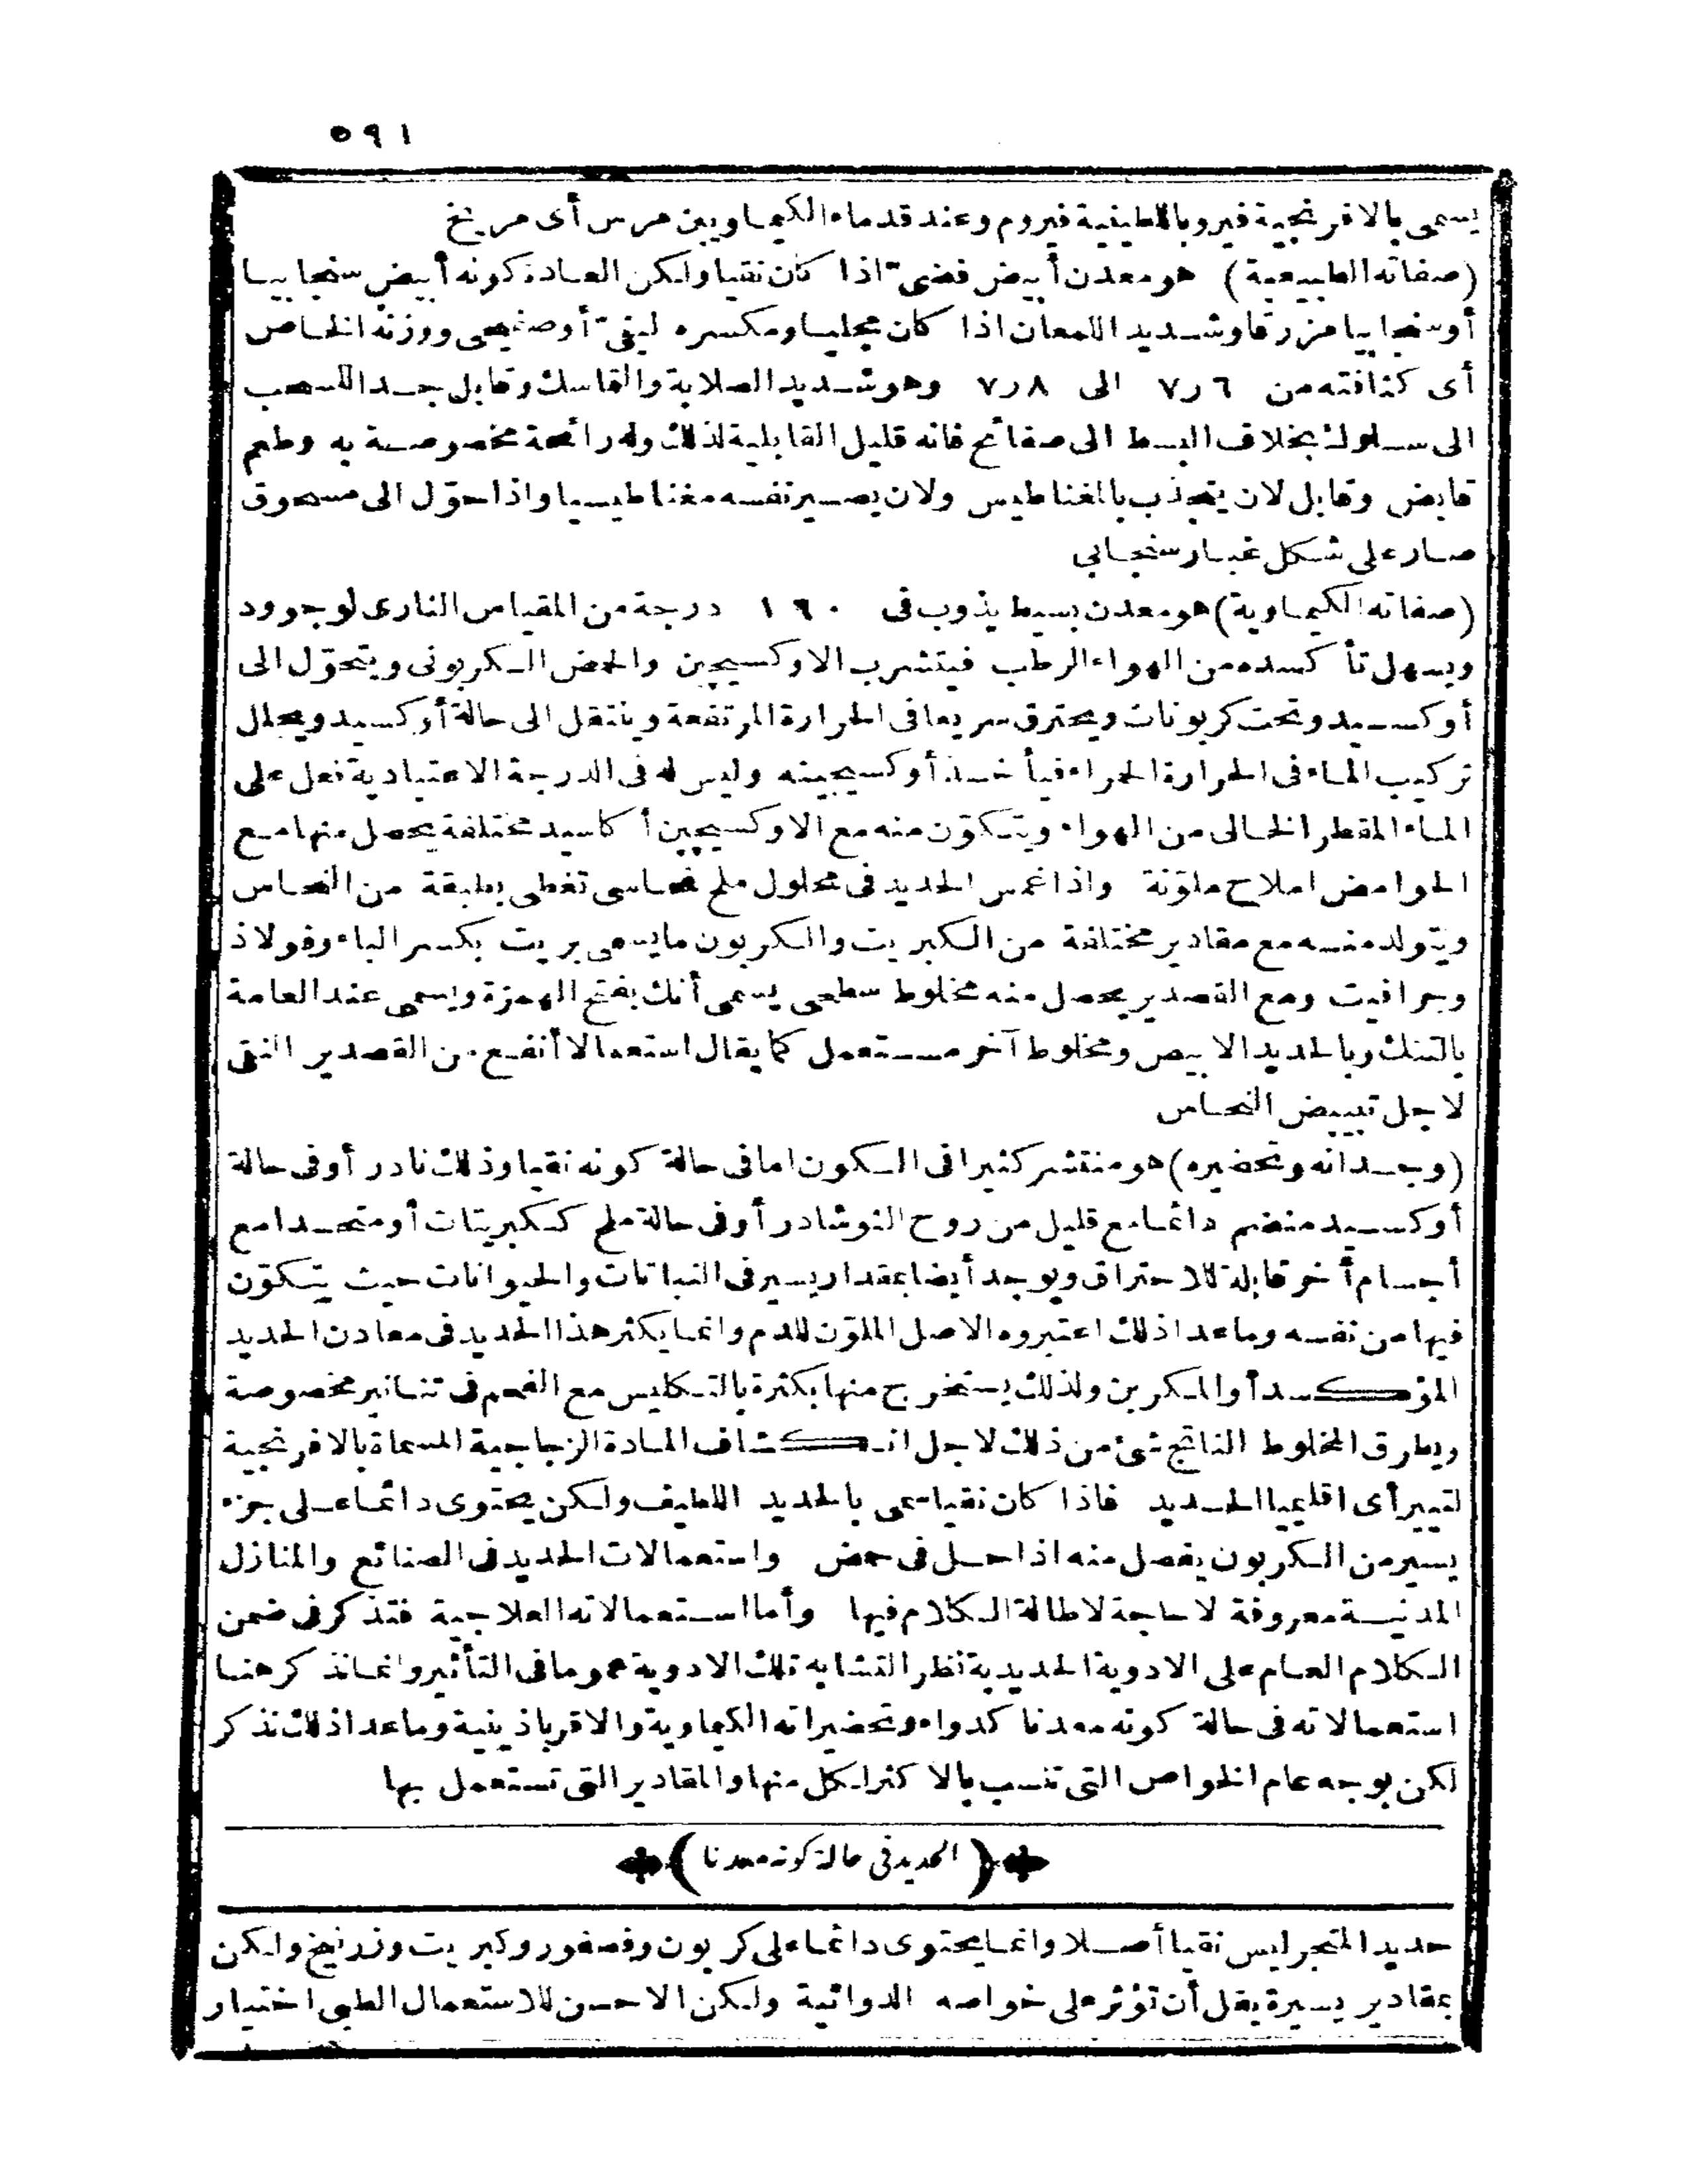 ٥٩١
يسمى بالافرنجية فيرو باللطينية فيروم وعند قدماء الكيماويين مرس أى مريخ
(صفاته الطبيعية) هو معدن أبيض فضىّ اذا كان نقيا ولكن العادة كونه أبيض سنجابيا
أوسنجابيا مزرقا وشديد اللمعان اذا كان مجليا ومكسره ليفىّ أوصفيحى ووزنه الخاص
أى كثافته من ٦ر٧ الى ٨ر٧ وهو شديد الصلابة والتماسك وقابل جدا للسحب
الى سلوك بخلاف البسط الى صفائح فانه قليل القابلية لذلك وله رائحة مخصوصة به وطعم
قابض وقابل لان ينجذب بالمغناطيس ولان يصير نفسه مغناطيسيا واذا حوّل الى مسحوق
صار على شكل غبار سنجابى
(صفاته الكيماوية) هو معدن بسيط يذوب فى ١٦٠ درجة من المقياس النارى لوجوود
ويسهل تأكسده من الهواء الرطب فيتشرب الاوكسيجين والحمض الكربونى ويتحوّل الى
أوكسيد وتحت كربونات ويحترق سريعا فى الحرارة المرتفعة وينتقل الى حالة أوكسيد ويحلل
تركيب الماء فى الحرارة الحمراء فيأخذ أوكسيجينه وليس له فى الدرجة الاعتيادية فعل على
الماء المقطر الخالى من الهواء ويتكوّن منه مع الاوكسيجين أكاسيد مختلفة يحصل منها مع
الحوامض املاح ملوّنة واذا غمس الحديد فى محلول ملح نحاسى تغطى بطبقة من النحاس
ويتولد منه مع مقادير مختلفة من الكبريت والكربون ما يسمى بريت بكسر الباء وفولاذ
وجرافيت ومع القصدير يحصل منه مخلوط سطحى يسمى أنك بفتح الهمزة ويسمى عند العامة
بالتنك وبالحديد الابيص ومخلوط آخر مستعمل كما يقال استعمالا أنفع من القصدير النقى
لاجل تبييض النحاس
(وجدانه وتحضيره) هو منتشر كثيرا فى الكون اما فى حالة كونه نقيا وذلك نادر أوفى حالة
أوكسيد منضم دائما مع قليل من روح النوشادر أوفى حالة ملح ككبريتات أومتحدا مع
أجسام أخر قابلة للاحتراق ويوجد أيضا بمقدار يسير فى النباتات والحيوانات حيث يتكوّن
فيها من نفسه وماعدا ذلك اعتبروه الاصل الملوّن للدم وانما يكثر هذا الحديد فى معادن الحديد
المؤكسد أو المكربن ولذلك يستخرج منها بكثرة بالتكليس مع الفحم فى تنانير مخصوصة
ويطرق المخلوط الناتج شئ من ذلك لاجل انكشاف المادة الزجاجية المسماة بالافرنجية
لتيير أى اقليميا الحديد فاذا كان نقيا سمى بالحديد اللطيف ولكن يحتوى دائما على جزء
يسير من الكربون يفصل منه اذا حل فى حمض واستعمالات الحديد فى الصنائع والمنازل
المدنية معروفة لاحاجة لاطالة الكلام فيها وأما استعمالاته العلاجية فتذكر فى ضمن
الكلام العام على الادوية الحديدية نظر التشابه تلك الادوية عموما فى التأثير وانما نذكر هنا
استعمالاته فى حالة كونه معدنا كدواء وتحضيراته الكيماوية والاقرباذينية وماعدا ذلك نذكر
لكن بوجه عام الخواص التى تنسب بالاكثر لكل منها والمقادير التى تستعمل بها
(الحديد فى حالة كونه معدنا)
حديد المتجر ليس نقيا أصلا وانما يحتوى دائما على كربون وفصفور وكبريت وزرنيخ ولكن
بمقادير يسيرة يقل أن تؤثر على خواصه الدوائية ولكن الاحسن للاستعمال الطبى اختيار